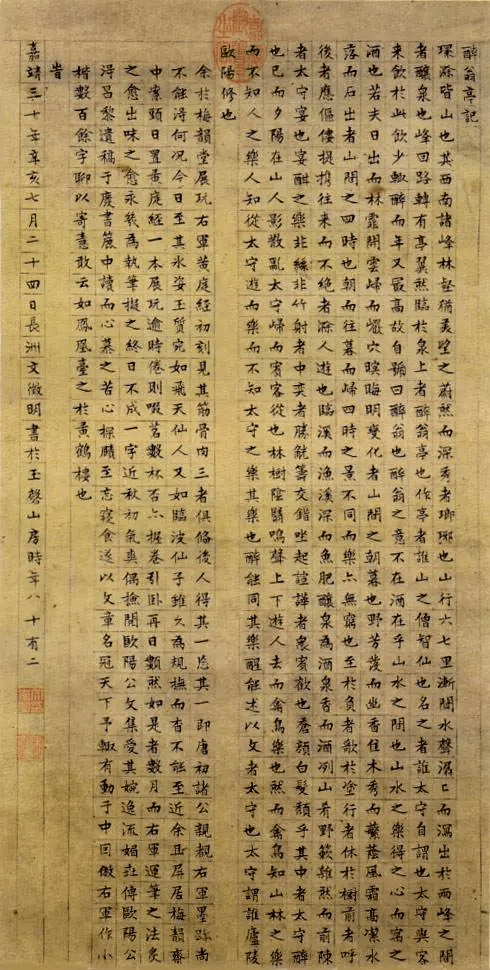 醉翁亭記
環滁皆山也其西南諸峰林壑猶美望之蔚然而深秀者瑯琊也山行六七里漸聞水聲潺〻而瀉出於兩峰之間
者釀泉也峰回路轉有亭翼然臨於泉上者醉翁亭也作亭者誰山之僧智仙也名之者誰太守自謂也太守與客
來飲於此飲少輒醉而年又最高故自號曰醉翁也醉翁之意不在酒在乎山水之間也山水之樂得之心而寓之
酒也若夫日出而林霏開雲歸而巖穴暝晦明變化者山間之朝暮也野芳發而幽香佳木秀而繁蔭風霜高潔水
落而石出者山間之四時也朝而往暮而歸四時之景不同而樂亦無窮也至於負者歌於塗行者休於樹前者呼
後者應傴僂提攜往來而不絕者滁人遊也臨溪而漁溪深而魚肥釀泉為酒泉香而酒冽山肴野蔌雜然而前陳
者太守宴也宴酣之樂非絲非竹射者中奕者勝觥籌交錯坐起諠譁者衆賓歡也蒼顏白髮頹乎其中者太守醉
也已而夕陽在山人影散亂太守歸而賓客從也林樹陰翳鳴聲上下遊人去而禽鳥樂也然而禽鳥知山林之樂
而不知人之樂人知從太守遊而樂而不知太守之樂其樂也醉能同其樂醒能述以文者太守也太守謂誰廬陵
歐陽修也
余於梅韻堂展玩右軍黃庭經初刻見其筋骨肉三者俱備後人得其一忘其一即唐初諸公親覩右軍墨跡尚
不能得何況今日至其冰姿玉質宛如飛天仙人又如臨波仙子雖久為規撫而杳不能至近余且屏居梅韻齋
中案頭日置黃庭經一本展玩逾時倦則啜茗數杯否亦握卷引臥再日數然如是者數月而右軍運筆之法炙
之愈出味之愈永幾為執筆擬之終日不成一字近秋初氣爽偶撿閱歐陽公文集愛其婉逸流媚並傳歐陽公
得呂黎遺稿于廢書簏中讀而心慕之苦心探賾至忘寢食遂以文章名冠天下予輒有動于中因倣右軍作小
楷數百餘字聊以寄意敢云如鳳凰臺之於黃鶴樓也
皆
嘉靖三十年辛亥七月二十四日長洲文徵明書於玉磬山房時年八十有二